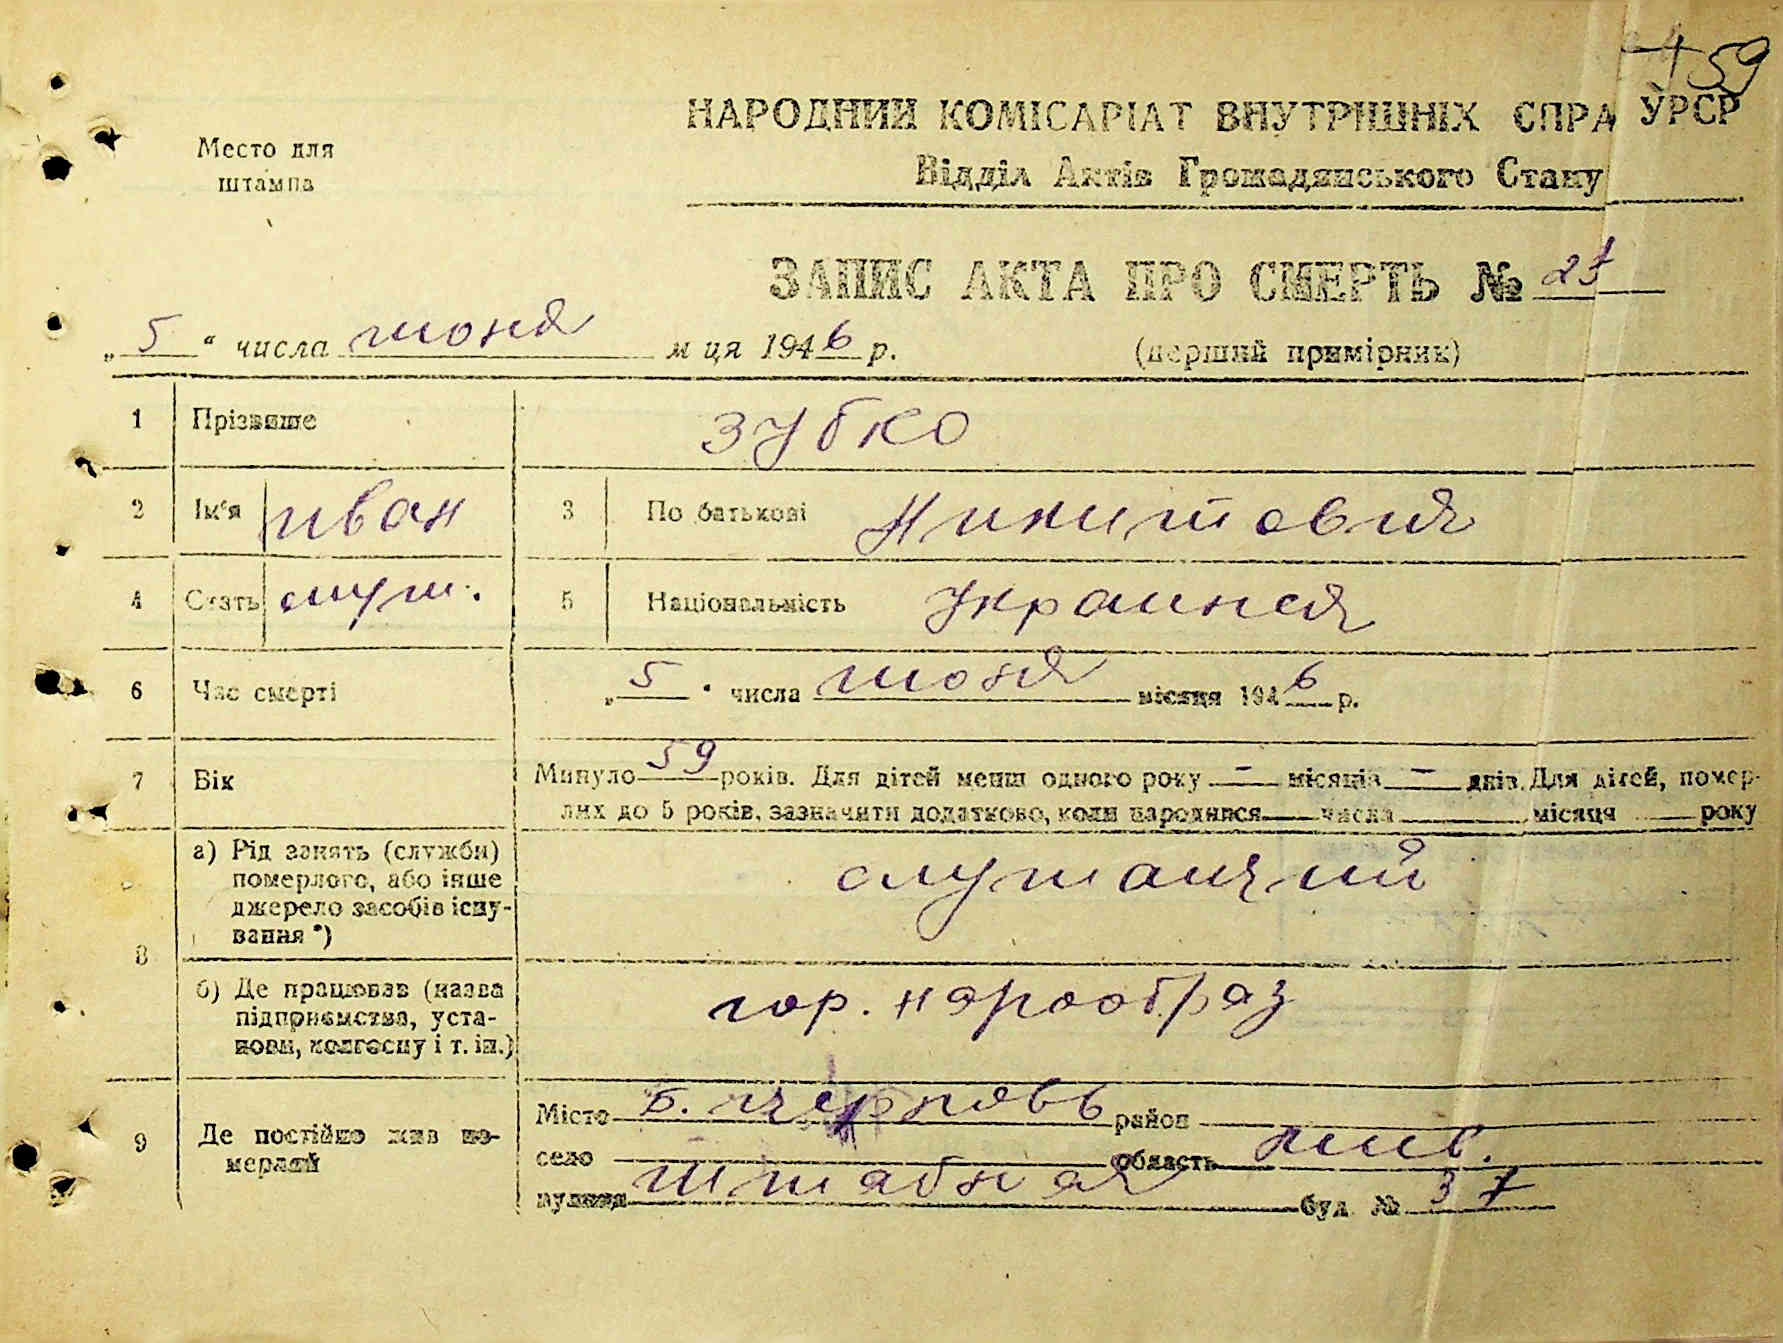 159
НАРОДНИЙ КОМІСАРІАТ ВНУТРІШНІХ СПРА УРСР
Место для
штампа
Відділ Актів Громадянського Стану
ЗАПИС АКТА ПРО СМЕРТЬ № 27
„5“ числа июня м ця 1946 р. (перший примірник)
1 Прізвище Зубко
2 Ім'я Иван 3 По батькові Никитович
4 Стать муж. 5 Національність Украинец
6 Час смерті „5" числа июня місяця 1946 р.
7 Вік Минуло 59 років. Для дітей менш одного року – місяців – днів. Для дітей, помер-
лих до 5 років, зазначити додатково, коли народився числа місяця року
8 а) Рід занять (служби)
померлого, або інше
джерело засобів існу-
вання *)
служащий
б) Де працював (назва
підприємства, уста-
нови, колгоспу і т. ін.)
гор. нарообраз
9 Де постійно жив по-
мерлий
Місто Б. Церковь район
село область Киев.
вулиця Штабная буд № 37